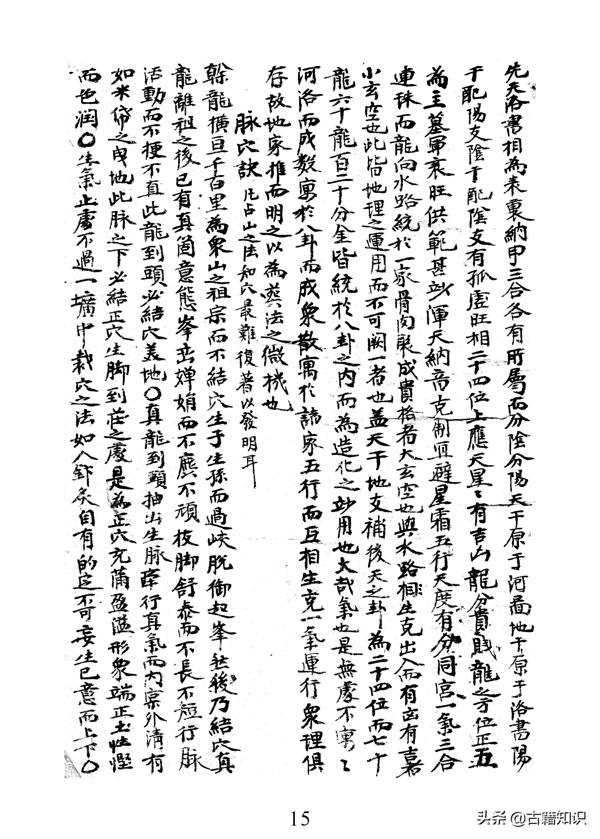 先天洛書相為表裏納甲三合各有所屬而分陰分陽天干原于河圖地干原于洛書陽
干配陽支陰干配陰支有孤虛旺相二十四位上應天星〻有吉凶龍分貴賤龍之方位正五
為主墓庫衰旺供範甚妙渾天納音克制宜避星霜五行天度有分同宮一氣三合
連珠而龍向水路統於一家骨肉聚成貴格者大玄空也與水路相生克出入而有凶有嘉
小玄空也此皆地理之運用而不可闕一者也盖天干地支補後天之卦為二十四位而七十
龍六十龍百二十分金皆統於八卦之內而為造化之妙用也大哉氣也是無處不寓〻
河洛而成數寓於八卦而成衆散寓於諸家五行而互相生克一氣運行衆理俱
存故地家推而明之以為葬法之微機也
脉穴訣 凡占山之法知穴最難復著以發明耳
幹龍橫亘千百里為衆山之祖宗而不結穴生于生孫而過峽脫卸起峯然後乃結穴真
龍離祖之後已有真箇意態峯巒嬋娟而不麤不頑枝脚舒泰而不長不短行脉
活動而不梗不直此龍到頭必結穴美地〇真龍到頭抽出生脉牽行真氣而內稟外清有
如米帒之曳地此脉之下必結正穴生脚到莊之處是為正穴充滿盈溢形象端正土性堅
而色潤〇生氣止處不過一壙中裁穴之法如人針灸自有的定不可妄生已意而上下〇
15
头条 @古籍知识